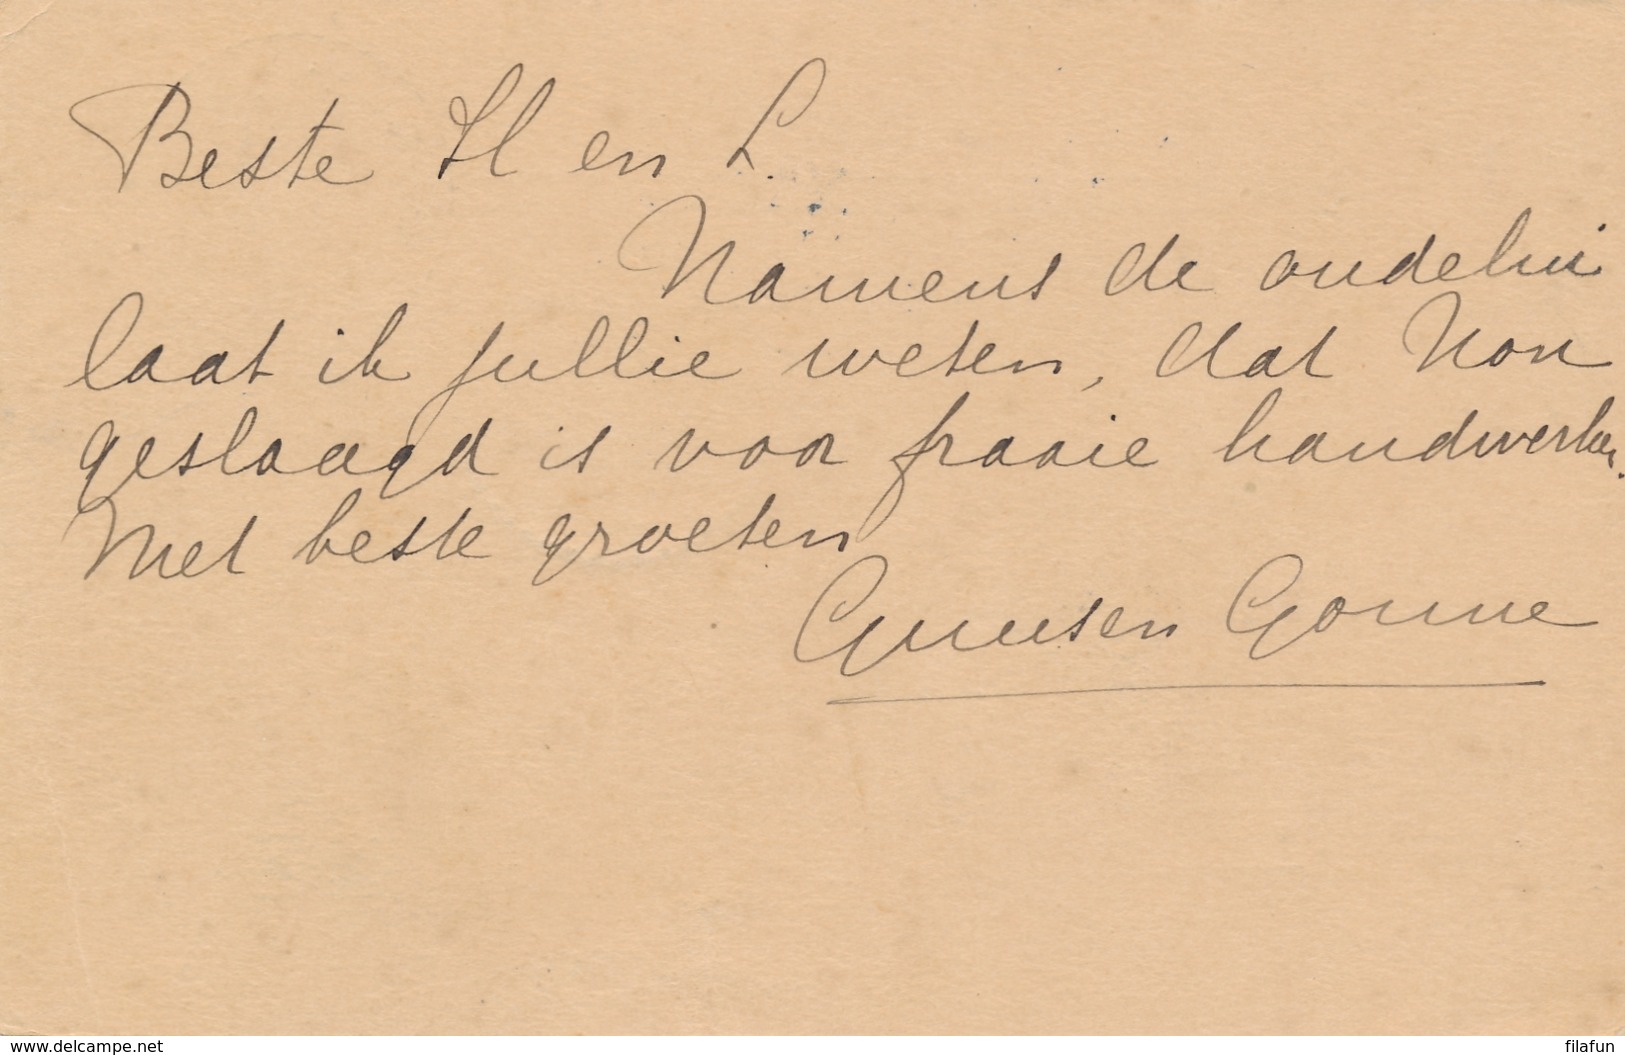 Beste H en L.
Namens de oudelui
laat ik jullie weten, dat Non
geslaagd is voor fraaie handwerken.
Met beste groeten
www.delcampe.net
filafun